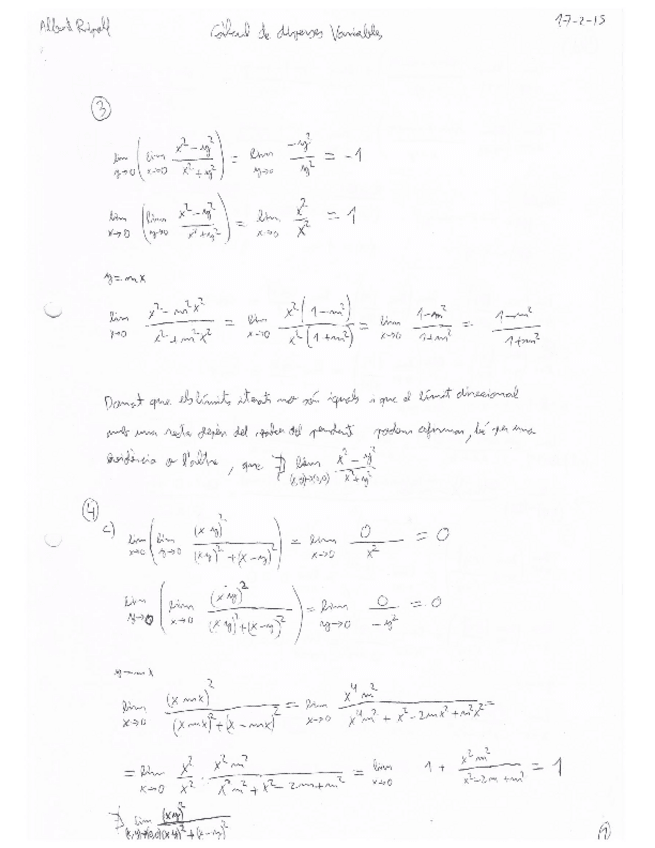 Albert Ripoll Càlcul de diverses Variables 17-2-15
③
lim y→0 (lim x→0 (x² - y²)/(x² + y²)) = lim y→0 -y²/y² = -1
lim x→0 (lim y→0 (x² - y²)/(x² + y²)) = lim x→0 x²/x² = 1
y = mx
lim x→0 (x² - m²x²)/(x² + m²x²) = lim x→0 x²(1 - m²)/x²(1 + m²) = lim x→0 (1 - m²)/(1 + m²) = (1 - m²)/(1 + m²)
Donat que els límits iterats no són iguals i que el límit direccional
amb una recta depèn del valor del pendent podem afirmar, bé per una
evidència o l'altre, que ∄ lim (x,y)→(0,0) (x² - y²)/(x² + y²)
④
c) lim x→0 (lim y→0 (xy)²/((xy)² + (x - y)²)) = lim x→0 0/x² = 0
lim y→0 (lim x→0 (xy)²/((xy)² + (x - y)²)) = lim y→0 0/-y² = 0
y = mx
lim x→0 (x mx)²/((x mx)² + (x - mx)²) = lim x→0 x⁴m²/(x⁴m² + x² - 2mx² + m²x²) =
= lim x→0 x²/x² · x²m²/(x²m² + x² - 2m + m²) = lim x→0 1 + x²m²/(x² - 2m + m²) = 1
∄ lim (x,y)→(0,0) (xy)²/((xy)² + (x - y)²)
①